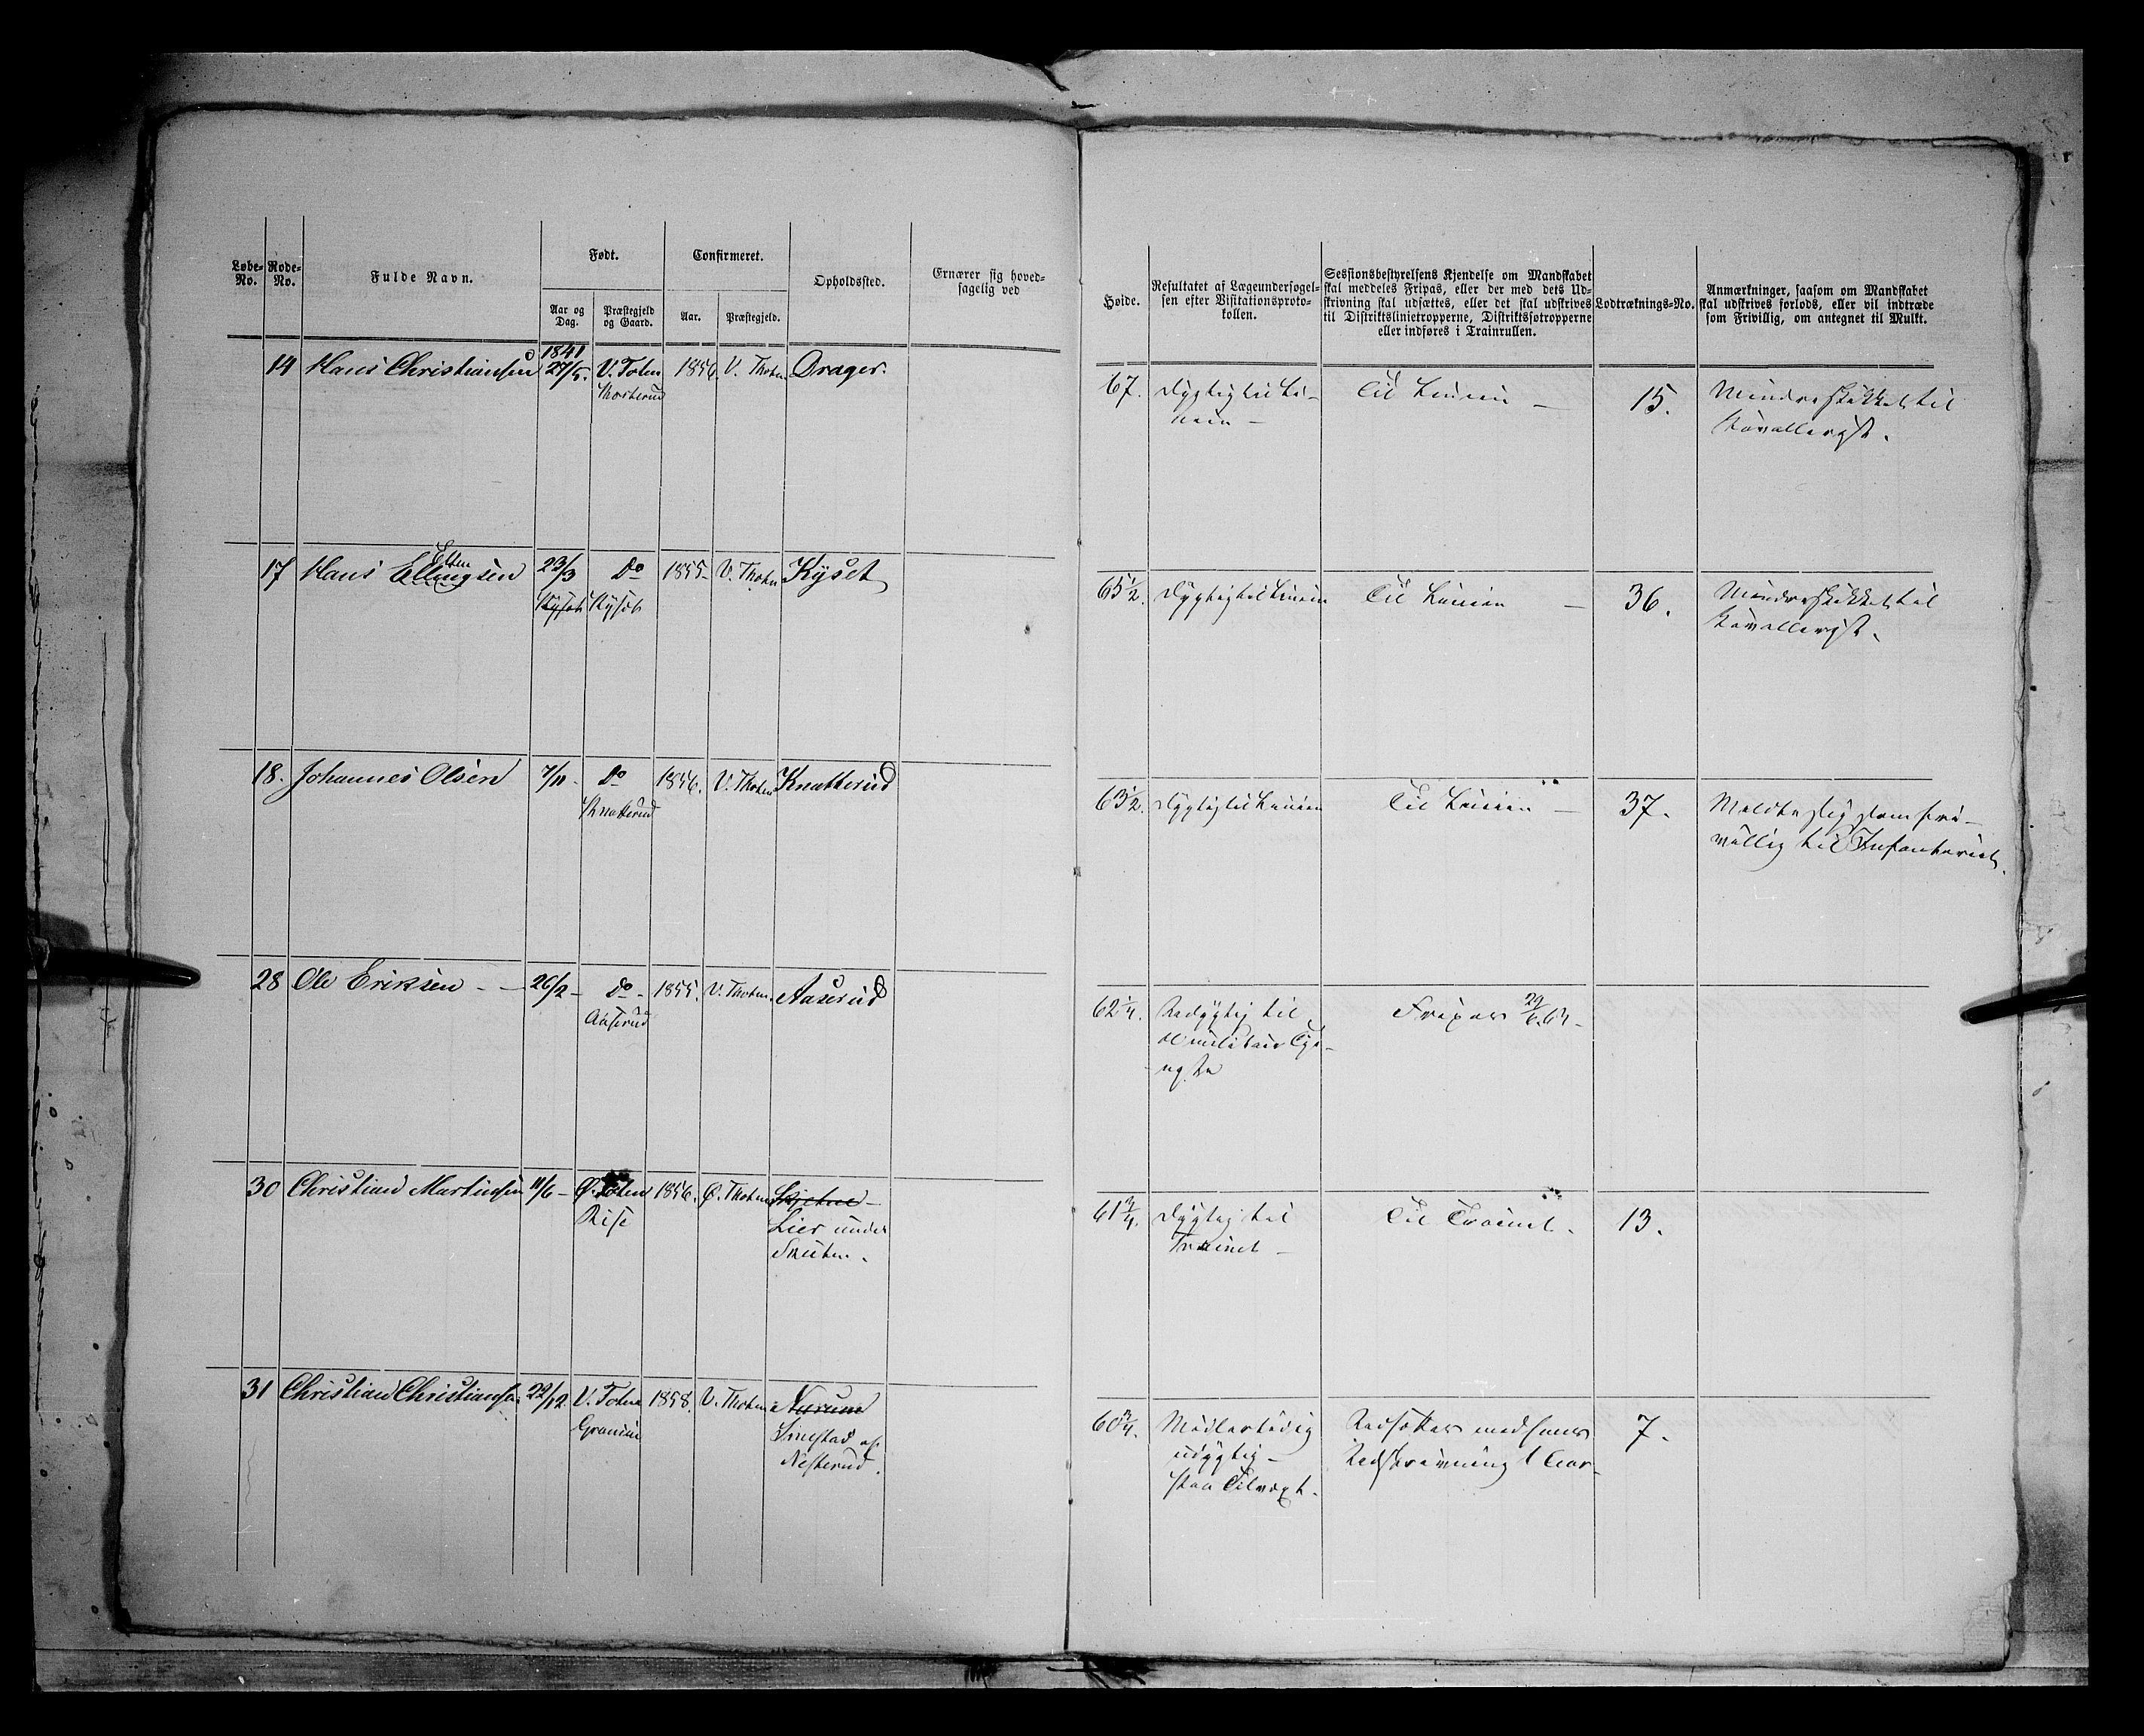 Løbe-No. Rode-No. Fulde Navn. Født. Confirmeret. Opholdssted. Ernærer sig hoved-
sagelig ved
Aar og Dag. Præstegjeld og Gaard. Aar. Præstegjeld.
Høide. Resultatet af Lægeundersøgel-
sen efter Visitationsproto-
kollen.
Sessionsbestyrelsens Kjendelse om Mandskabet
skal meddeles Fripas, eller der med dets Ud-
skrivning skal udsættes, eller det skal udskrives
til Distriktslinietropperne, Distriktsjøtropperne
eller indføres i Trainrullen.
Lodtræknings-No.
Anmærkninger, saasom om Mandskabet
skal udskrives forlods, eller vil indtræde
som Frivillig, om antegnet til Mulkt.
1841
14 Hans Christiansen 27/5. V. Toten 1856. V. Thoten Drager.
67. Dygtig til Li-
nien –
Til Linien – 15. Mindre skikket til
Kavallerist.
Elten
17 Hans Ellingsen 23/3 Do 1855 V. Thoten Kyset
Kyset Kyset
65 1/2. Dygtig til Linien Til Linien – 36. Mindre skikket til
Kavallerist.
18. Johannes Olsen 7/11 - Do 1856. V. Thoten Knatterud
Knatterud
63 1/2. Dygtig til Linien Til Linien – 37. Meldte sig som fri-
villig til Infanteriet.
28 Ole Eriksen - - 26/2 - Do - 1855. V. Thoten. Aaserud
Aaserud
62 1/4. Udygtig til
al militair Tje-
neste
Fripas 29/6.64.
30 Christian Martinsen 11/6 - Ø. Toten 1856. Ø. Thoten
Rise
Lier under
61 3/4. Dygtig til
Trainet –
Til Trainet. 13.
31 Christian Christiansen 22/12 V. Toten 1858. V. Thoten Narum
Sinestad af
Nesterud.
60 3/4. Midlertidig
udygtig –
Udsættes med hans
Udskrivning 1 Aar – 7.